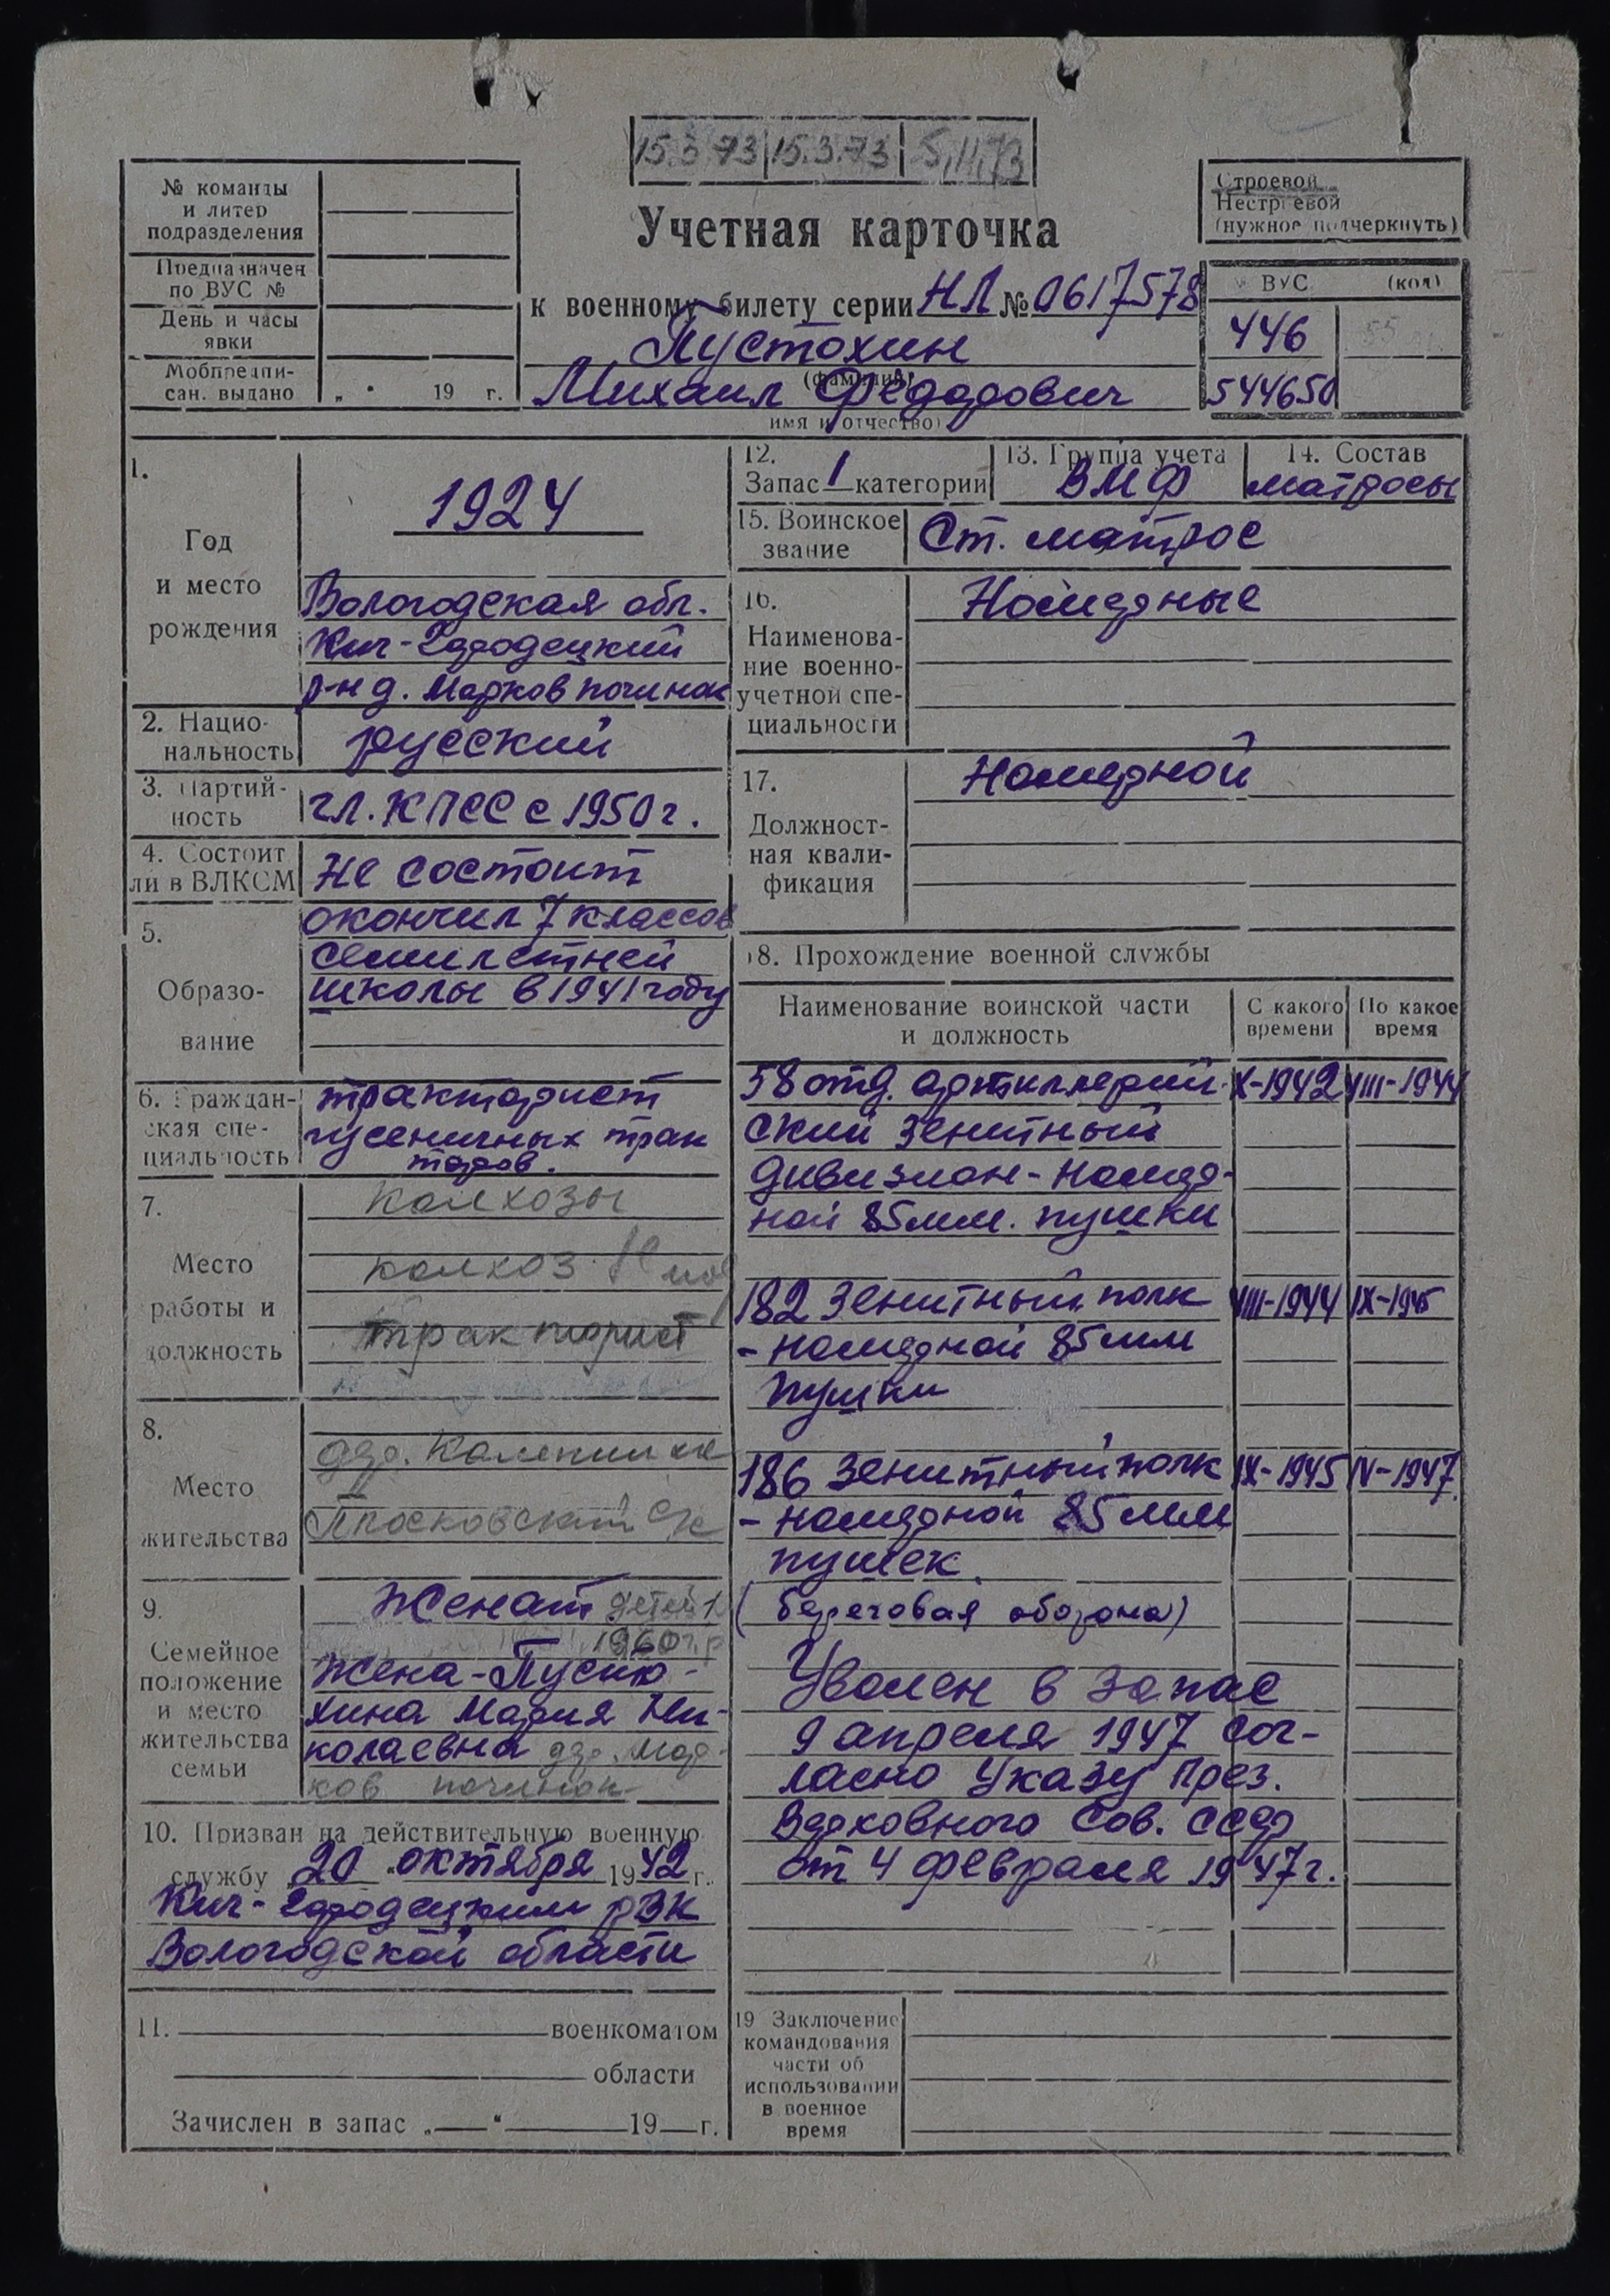 15.3.73 15.3.73 5.11.73
№ команды
и литер
подразделения
Предназначен
по ВУС №
День и часы
явки
Мобпредпи-
сан. выдано „ " 19 г.
Учетная карточка
к военному билету серии НЛ № 0617578
Пустохин
(фамилия)
Михаил Фёдорович
имя и отчество)
Строевой
Нестроевой
(нужное подчеркнуть)
ВУС (код)
446
544650
1.
Год
и место
рождения
1924
Вологодская обл.
Кич-Городецкий
р-н д. Марков починок
2. Нацио-
нальность
русский
3. Партий-
ность
чл. КПСС с 1950 г.
4. Состоит
ли в ВЛКСМ
Не состоит
5.
Образо-
вание
окончил 7 классов
семилетней
школы в 1941 году
6. Граждан-
ская спе-
циальность
тракторист
гусеничных трак
торов.
7.
Место
работы и
должность
колхозы
колхоз
тракторист
8.
Место
жительства
дер.
9.
Семейное
положение
и место
жительства
семьи
Женат детей 1
1960 г.р
жена - Пусто-
хина Мария Ни-
колаевна дер. Мар-
ков починок
10. Призван на действительную военную
службу 20 октября 1942 г.
Кич-Городецким РВК
Вологодской области
11. военкоматом
области
Зачислен в запас „ " 19 г.
12.
Запас 1 категории
13. Группа учета
ВМФ
14. Состав
матросы
15. Воинское
звание
Ст. матрос
16.
Наименова-
ние военно-
учетной спе-
циальности
Номерные
17.
Должност-
ная квали-
фикация
Номерной
18. Прохождение военной службы
Наименование воинской части
и должность
С какого
времени
По какое
время
58 отд. артиллерий- X-1942 VIII-1944
ский зенитный
дивизион - номер-
ной 85 мм. пушки
182 зенитный полк VIII-1944 IX-1945
- номерной 85 мм
пушки
186 зенитный полк IX-1945 IV-1947
- номерной 85 мм
пушек.
(береговая оборона)
Уволен в запас
9 апреля 1947 сог-
ласно Указу През.
Верховного Сов. СССР
от 4 февраля 1947 г.
19 Заключение
командования
части об
использовании
в военное
время